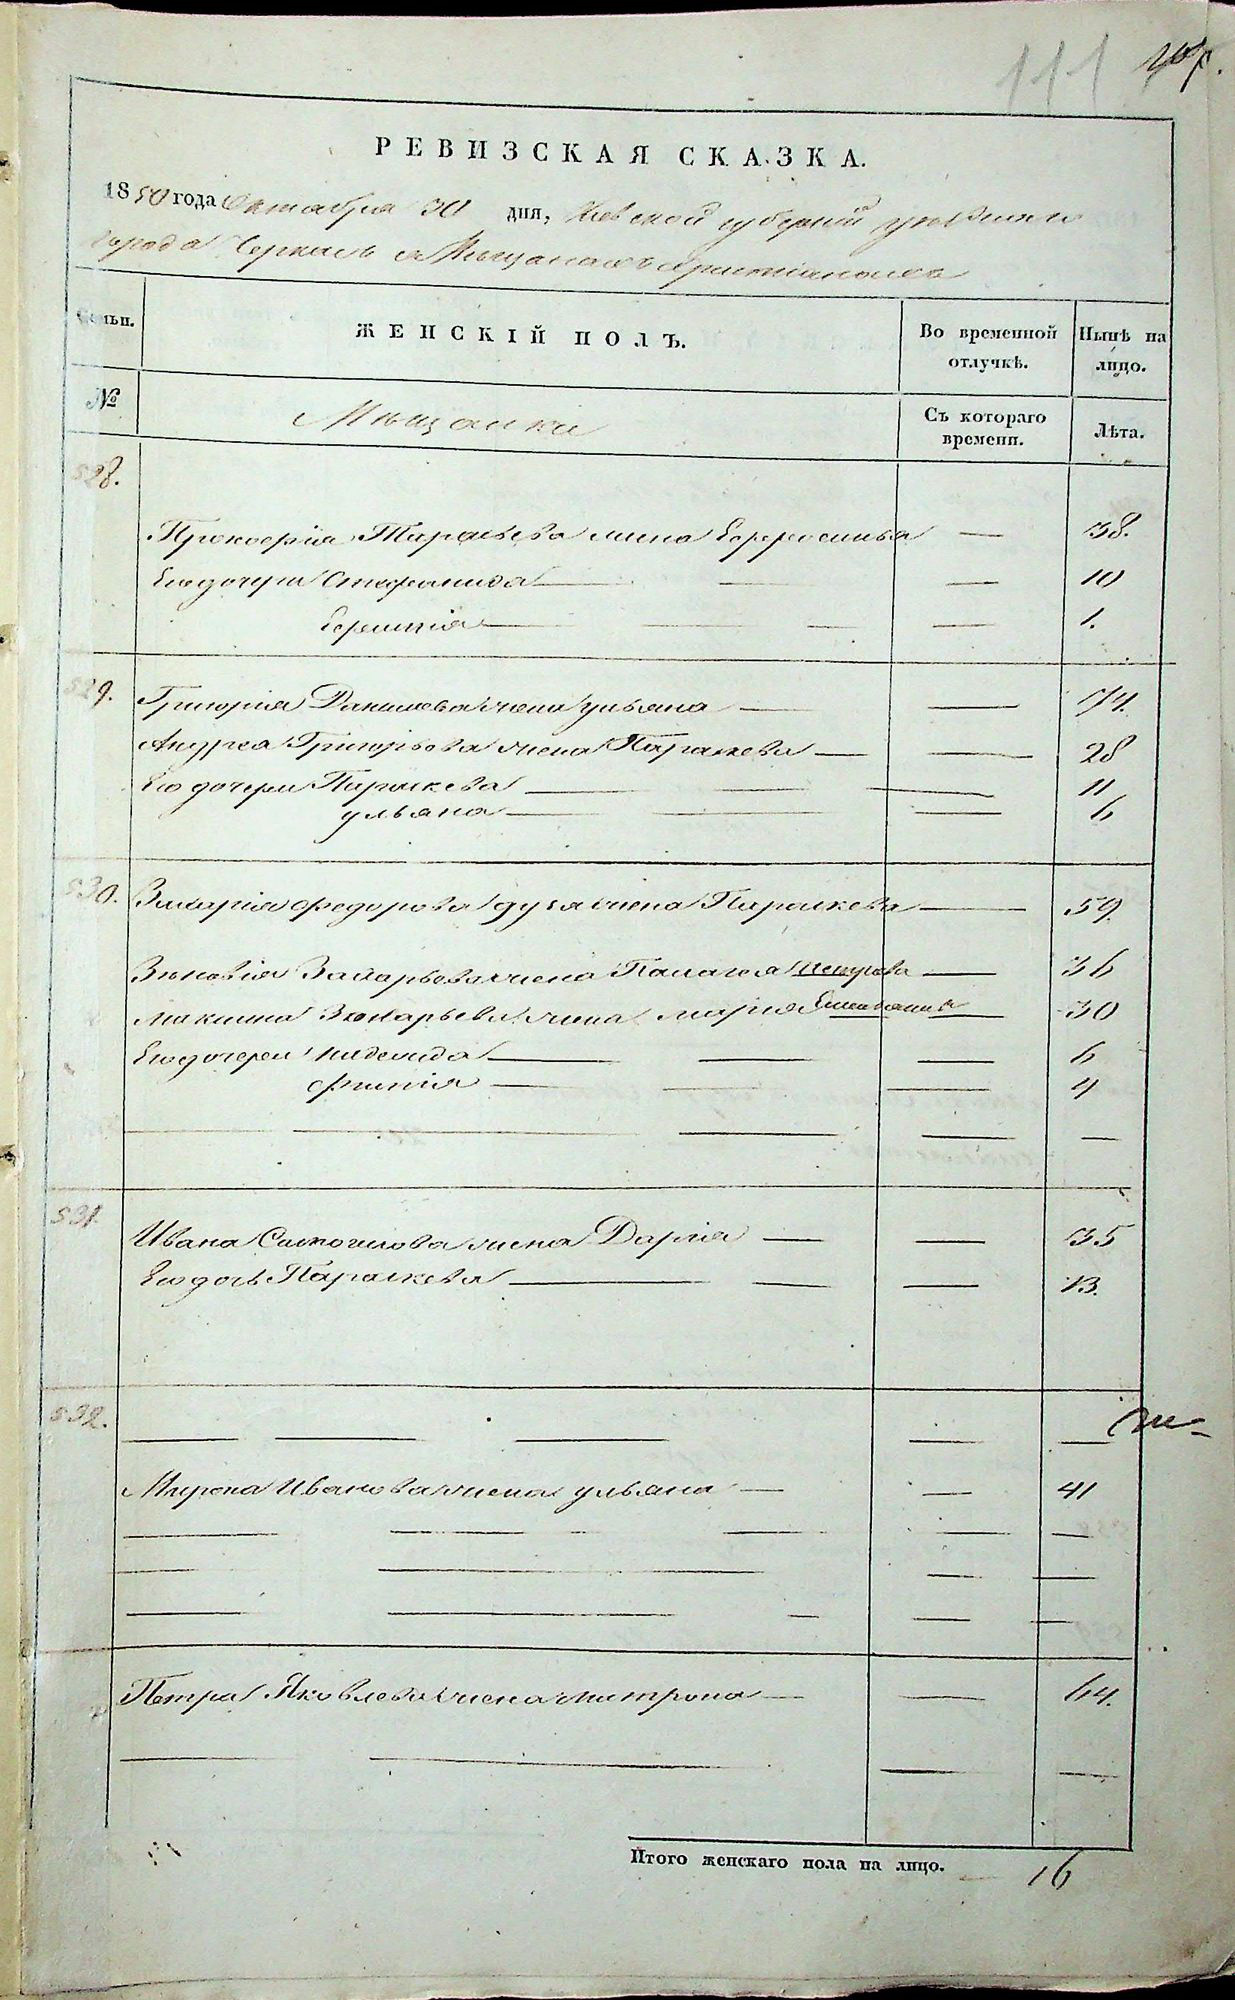 111
РЕВИЗСКАЯ СКАЗКА.
1850 года Октября 30 дня, Киевской губерніи
города Черкасъ о Мѣщанахъ христіанахъ
Семьи. ЖЕНСКІЙ ПОЛЪ. Во временной отлучкѣ. Нынѣ на лицо.
№ Мѣщанки Съ котораго времени. Лѣта.
528.
жена — 38.
Его дочери Стефанида — — — 10
— — — — 1.
529. Григорія Данилева жена Ульяна — — 74.
Андрея Григорьева жена Параскева — — 28
Его дочери Параскева — — — 11
Ульяна — — — 6
530. Захарія Федорова жена Параскева — 59.
Зѣновія Захарьева жена Палагея Петрова — 36
Максима Захарьева жена Марія — 30
Его дочери Надежда — — — 6
— — — 4
— — — — —
531. Ивана жена Дарія — — 35
Его дочь Параскева — — — 13.
532.
— — — — —
Мирона Иванова жена Ульяна — — 41
— — — — —
— — — —
— — — — —
Петра Яковлева жена Матрона — — 64.
— — — —
Итого женскаго пола на лицо. — 16